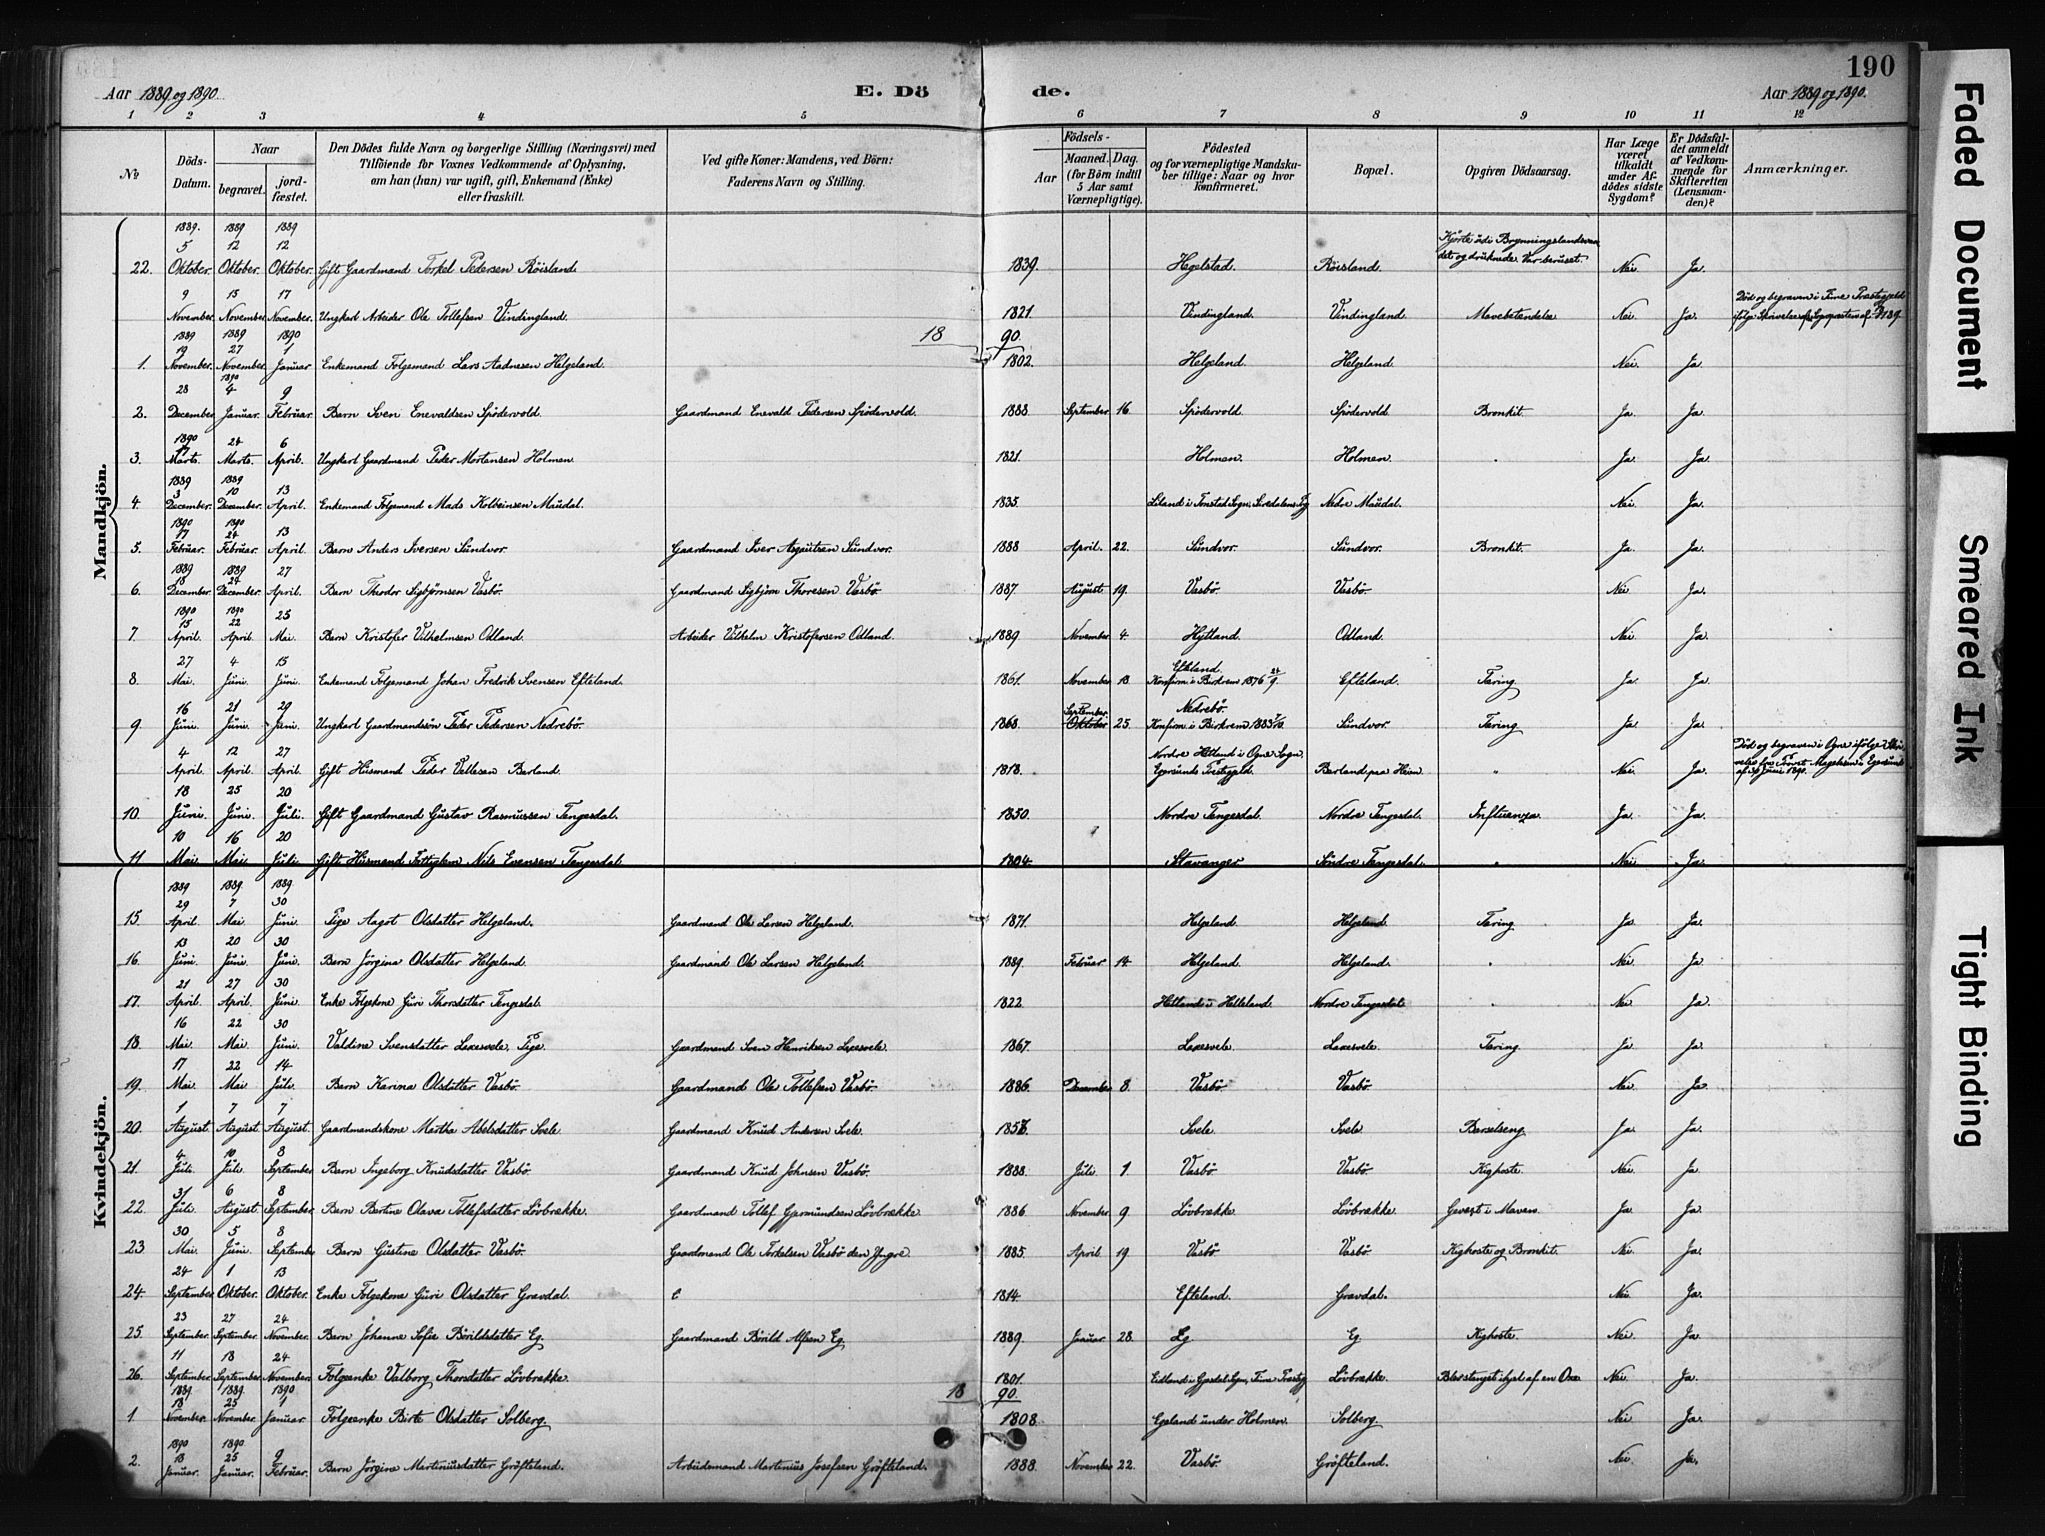 190
Aar 1889 og 1890. E. Dö de. Aar 1889 og 1890.
1 2 3 4 5 6 7 8 9 10 11 12
No
Döds-Datum.
Naar begravet. jordfæstet.
Den Dödes fulde Navn og borgerlige Stilling (Næringsvei) med
Tilföiende for Voxnes Vedkommende af Oplysning,
om han (hun) var ugift, gift, Enkemand (Enke)
eller fraskilt.
Ved gifte Koner: Mandens, ved Börn:
Faderens Navn og Stilling.
Födsels-
Aar Maaned. Dag.
(for Börn indtil
5 Aar samt
Værnepligtige).
Födested
og for værnepligtige Mandskaber tillige: Naar og hvor
Konfirmeret.
Bopæl.
Opgiven Dödsaarsag.
Har Læge været tilkaldt under Afdödes sidste Sygdom?
Er Dödsfaldet anmeldt af Vedkommende for Skifteretten (Lensmanden)?
Anmærkninger.
Mandkjön.
1889. 1889 1889
5 12 12
22. Oktober. Oktober. Oktober. Gift Gaardmand Torkel Pedersen Röisland. 1839. Hegelstad. Röisland. Nei. Ja.
9 13 17
November. November. November. Ungkarl Arbeider Ole Tollefsen Vindingland. 1821. Vindingland. Vindingland. Mavebetendelse Nei. Ja.
18 90.
1889 1889 1890
19 27 1
1. November. November. Januar Enkemand Folgemand Lars Aadnesen Helgeland. 1802. Helgeland. Helgeland. Nei. Ja.
1890
28 4 9
2. December. Januar. Februar. Barn Sven Enevaldsen Spödervold. Gaardmand Enevald Pedersen Spödervold. 1888 September 16 Spödervold. Spödervold Bronkit. Ja. Ja.
1890 24 6
17
3. Marts. Marts. April. Ungkarl Gaardmand Peder Mortensen Holmen. 1821. Holmen. Holmen. " Ja. Ja.
1889 1889
3 10 13
4. December. December. April. Enkemand Folgemand Mads Kolbeinsen Maudal. 1835. Liland i Tonstad Sogn, Siredalens Pg. Nedre Maudal. Nei. Ja.
1890 1890
17 24 13
5. Februar. Februar. April. Barn Anders Iversen Sundvor. Gaardmand Iver Asgautsen Sundvor. 1888 April. 22. Sundvor. Sundvor. Bronkit. Ja. Ja.
1889 1889 27
18 24
6. December. December. April. Barn Theodor Sigbjörnsen Vasbö. Gaardmand Sigbjörn Thoresen Vasbö. 1887. August. 19. Vasbö. Vasbö. Nei. Ja.
1890 1890
15 22 25
7 April. April. Mai. Barn Kristofer Vilhelmsen Odland. Arbeider Vilhelm Kristofersen Odland. 1889 November. 4. Hytland. Odland. Nei. Ja.
27 4 15
8. Mai. Juni. Juni. Enkemand Folgemand Johan Fredrik Svensen Efteland. 1861. November 18. Efteland. Konfirm. i Birkrem 1876 24/9. Efteland. Tæring Ja. Ja.
16 21 29
9 Juni. Juni. Juni. Ungkarl Gaardmandssön Peder Pedersen Nedrebö. 1868. September. Oktober 25. Nedrebö. Konfirm. i Birkrem 1883 Sundvor. Tæring Ja. Ja.
4 12 27
April. April. April. Gift Husmand Peder Vallesen Berland. 1818. Nordre Hetland i Ogne Sogn. Egersunds Præstegjeld. Berland paa Heien. " Nei. Ja.
18 25 20
10. Juni. Juni. Juli. Gift Gaardmand Gustav Rasmussen Tengesdal. 1850. Nordre Tengesdal. Nordre Tengesdal. Influenza. Ja. Ja.
10 16 20
11 Mai. Mai. Juli. Gift Husmand Fattiglem Nils Evensen Tengesdal. 1804. Stavanger Söndre Tengesdal. " Nei. Ja.
Kvindekjön.
1889 1889. 1889
29 7 30
15 April. Mai. Juni. Pige Aagot Olsdatter Helgeland. Gaardmand Ole Larsen Helgeland. 1871. Helgeland. Helgeland Tæring. Ja. Ja.
13 20 30
16. Juni. Juni. Juni. Barn Jörgina Olsdatter Helgeland. Gaardmand Ole Larsen Helgeland. 1889. Februar 14 Helgeland. Helgeland. " Nei. Ja
21 27 30
17. April. April. Juni. Enke Folgekone Guri Thorsdatter Tengesdal. 1822 Hetland i Helleland. Nordre Tengesdal. " Nei. Ja
16 22 30
18. Mai. Mai. Juni. Valdine Svensdatter Laxesvele, Pige. Gaardmand Sven Henriksen Laxesvele. 1867. Laxesvele. Laxesvele. Tæring Ja Ja
17 22 14
19. Mai. Mai. Juli. Barn Karina Olsdatter Vasbö. Gaardmand Ole Tollefsen Vasbö. 1886. December 8. Vasbö. Vasbö. Nei. Ja
1 7 7
20 August. August. August. Gaardmandskone Martha Abelsdatter Svele. Gaardmand Knud Andersen Svele. 1857. Svele. Svele Barselseng. Ja. Ja.
4. 10 8
21. Juli. Juli. September. Barn Ingeborg Knudsdatter Vasbö. Gaardmand Knud Johnsen Vasbö. 1888. Juli. 1 Vasbö. Vasbö Kighoste. Nei. Ja
31 6 8
22. Juli. August. September. Barn Bertine Olava Tollefsdatter Lövbrække. Gaardmand Tollef Gjermundsen Lövbrække 1886 November. 9 Lövbrække Lövbrække. Gevæxt i Maven. Ja Ja.
30 5 8
23 Mai. Juni. September. Barn Gustine Olsdatter Vasbö. Gaardmand Ole Torkelsen Vasbö den Yngre. 1885. April. 19 Vasbö Vasbö. Kighoste og Bronkit. Nei. Ja.
24 1 13
24. September. Oktober. Oktober. Enke Folgekone Guri Olsdatter Gravdal. 1814. Efteland. Gravdal. Nei Ja.
23 27 24
25. September. September. November. Barn Johanne Sofie Börildsdatter Eg. Gaardmand Börild Alfsen Eg. 1889. Januar. 28. Eg. Eg. Kighoste. Nei. Ja.
11 18 24
26. September. September. November. Folgeenke Valborg Thorsdatter Lövbrække. 1801. Lövbrække. Blev stanget ihjel af en Oxe. Nei. Ja.
18 90.
1889 1889. 1890
18 25 1
1 November. November. Januar. Folgeenke Birte Olsdatter Solberg. 1808. Egeland under Holmen. Solberg. Nei Ja.
1890 1890
18 25 9
2. Januar. Januar. Februar. Barn Jörgine Martiniusdatter Gröfteland. Arbeidsmand Martinius Josefsen Gröfteland. 1888. November 22. Vasbö. Gröfteland. Nei Ja.
Faded Document
Smeared Ink
Tight Binding